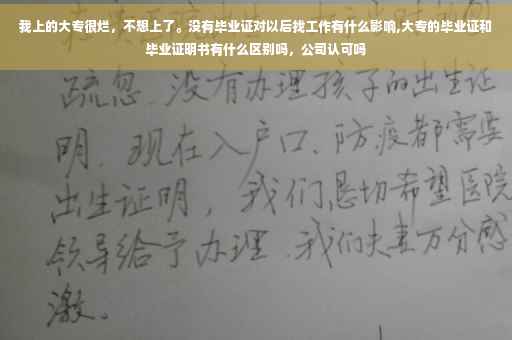 我上的大专很烂，不想上了。没有毕业证对以后找工作有什么影响,大专的毕业证和
毕业证明书有什么区别吗，公司认可吗
疏忽，没有办理孩子的出生证
明，现在入户口、防疫都需要
出生证明，我们恳切希望医院
领导给予办理，我们夫妻万分感
激。